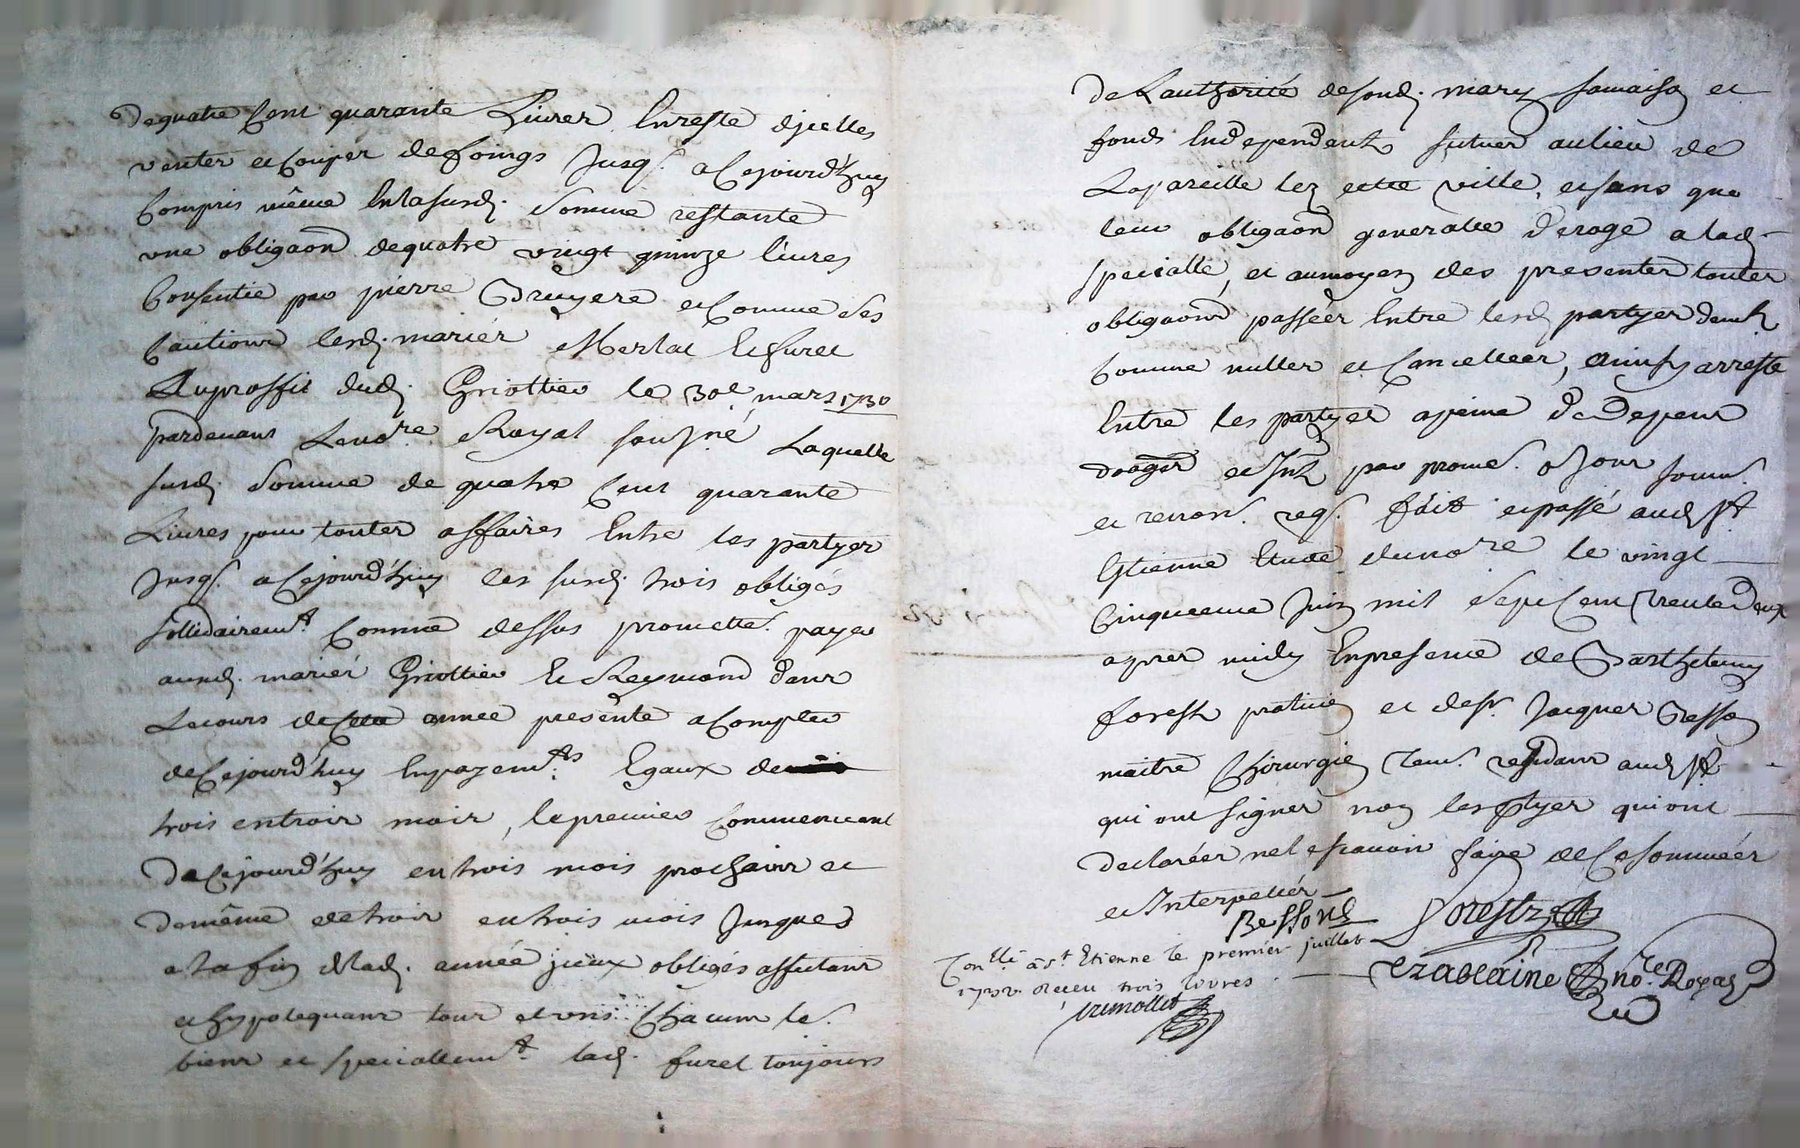 de quatre cent quarante Livres En reste d'jcelles
ventes et coupes de foings Jusq. a Cejourd'huy
Compris même En la susd. somme restante
une obligaôn de quatre vingt quinze livres
Consentie par pierre Bruyere et Comme ses
Cautions lesd. mariés Merlat Et furet
Au proffit dud. Griottier le 30e mars 1730
pardevant Le nore. Royal sousné. Laquelle
susd. somme de quatre Cent quarante
Livres pour toutes affaires Entre les partyes
Jusq. a Cejourd'huy les susd. trois obligés
sollidairemt. Comme dessus promette. payer
ausd. mariés Griottier Et Reymond dans
Le cours de Cette année presente a Compter
de Cejourd'huy En payemts. Egaux de
trois en trois mois, le premier Commencant
de Cejourd'huy en trois mois prochains et
de même de trois en trois mois Jusques
a la fin de lad. année jceux obligés affectant
et hypotequant tous et uns Chacun les.
biens et speciallemt. lad. furet toujours
de L'authorité de sond. mary sa maison et
fonds Independents situés au lieu de
La pareille lez cette ville, et sans que
leur obligaôn generalle deroge a lad.
specialle, et au moyen des presentes toutes
obligaôns passées Entre lesd. partyes demh
Comme nulles et Cancellées, ainsy arresté
Entre les partyes a peine de Depens
doages et Jnts par promes. oblons soums.
et renons. reqs. fait et passé aud. St
Etienne Etude du nore le vingt
Cinqueme Juin mil sept Cent trente deux
apres midy En presence de Barthelemy
forest praticien et de sr. Jacques Besson
maitre Chirurgien tems. residant aud. St
qui ont signés non les Ptyes qui ont
declarées ne le scavoir faire de Ce sommées
et Interpellés
Besson Forest
Conllé. à St Etienne le premier juillet
1732 Receu trois livres
trimollet
Chazalaine nore. Royal